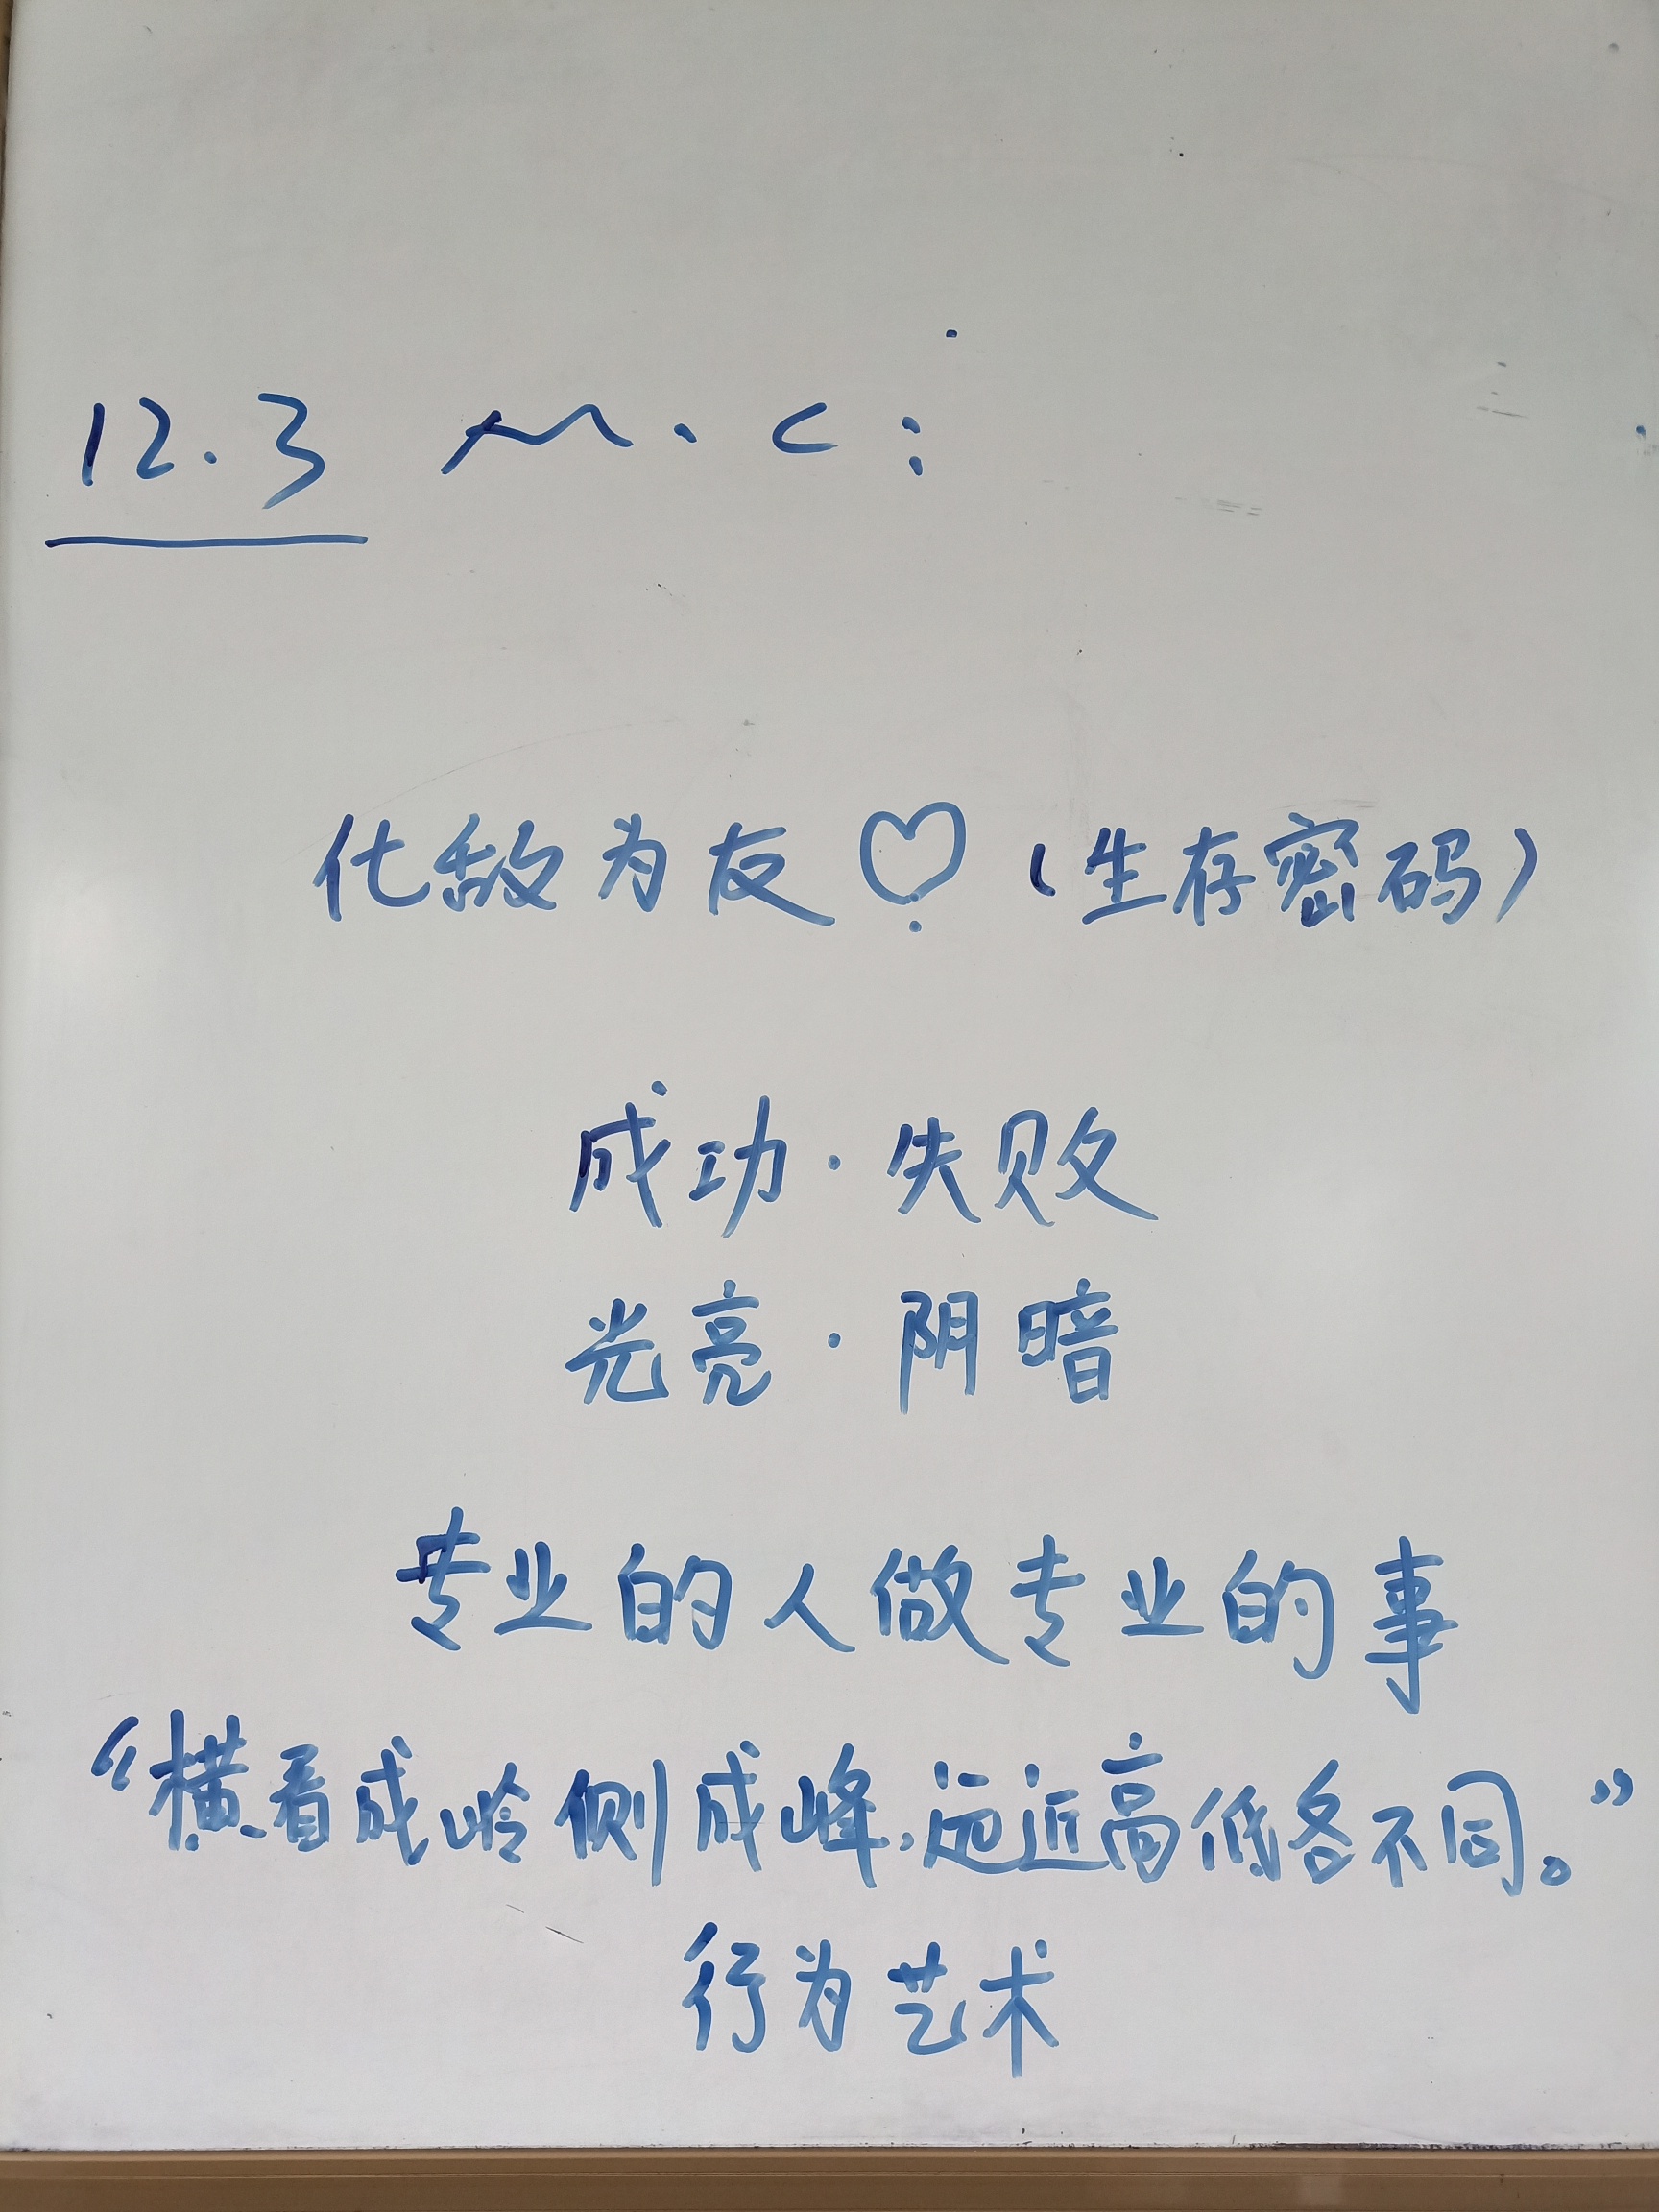 12.3 M.C:
化敌为友♡(生存密码)
成功·失败
光亮·阴暗
专业的人做专业的事
“横看成岭侧成峰,远近高低各不同。”
行为艺术